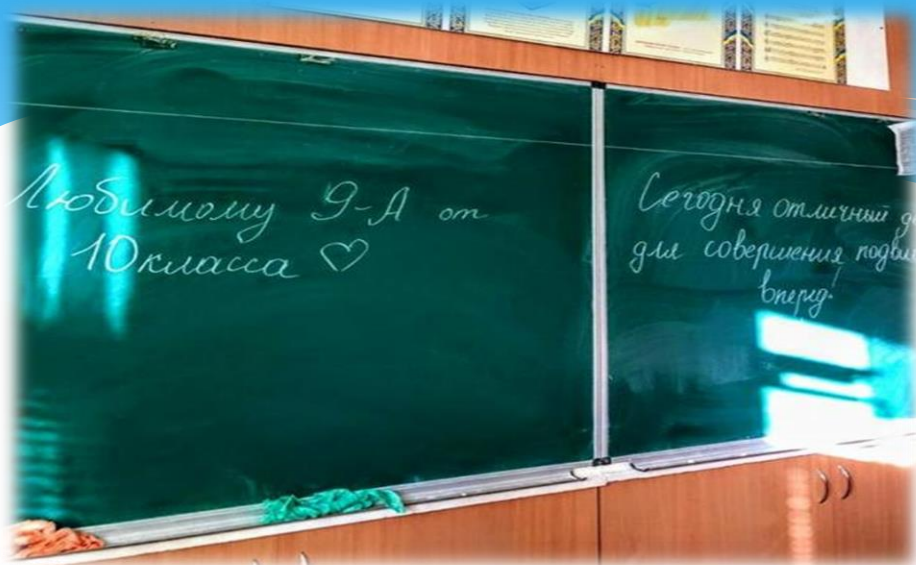 Любимому 9-А от
10 класса ♡
Сегодня отличный
для совершения
вперед!